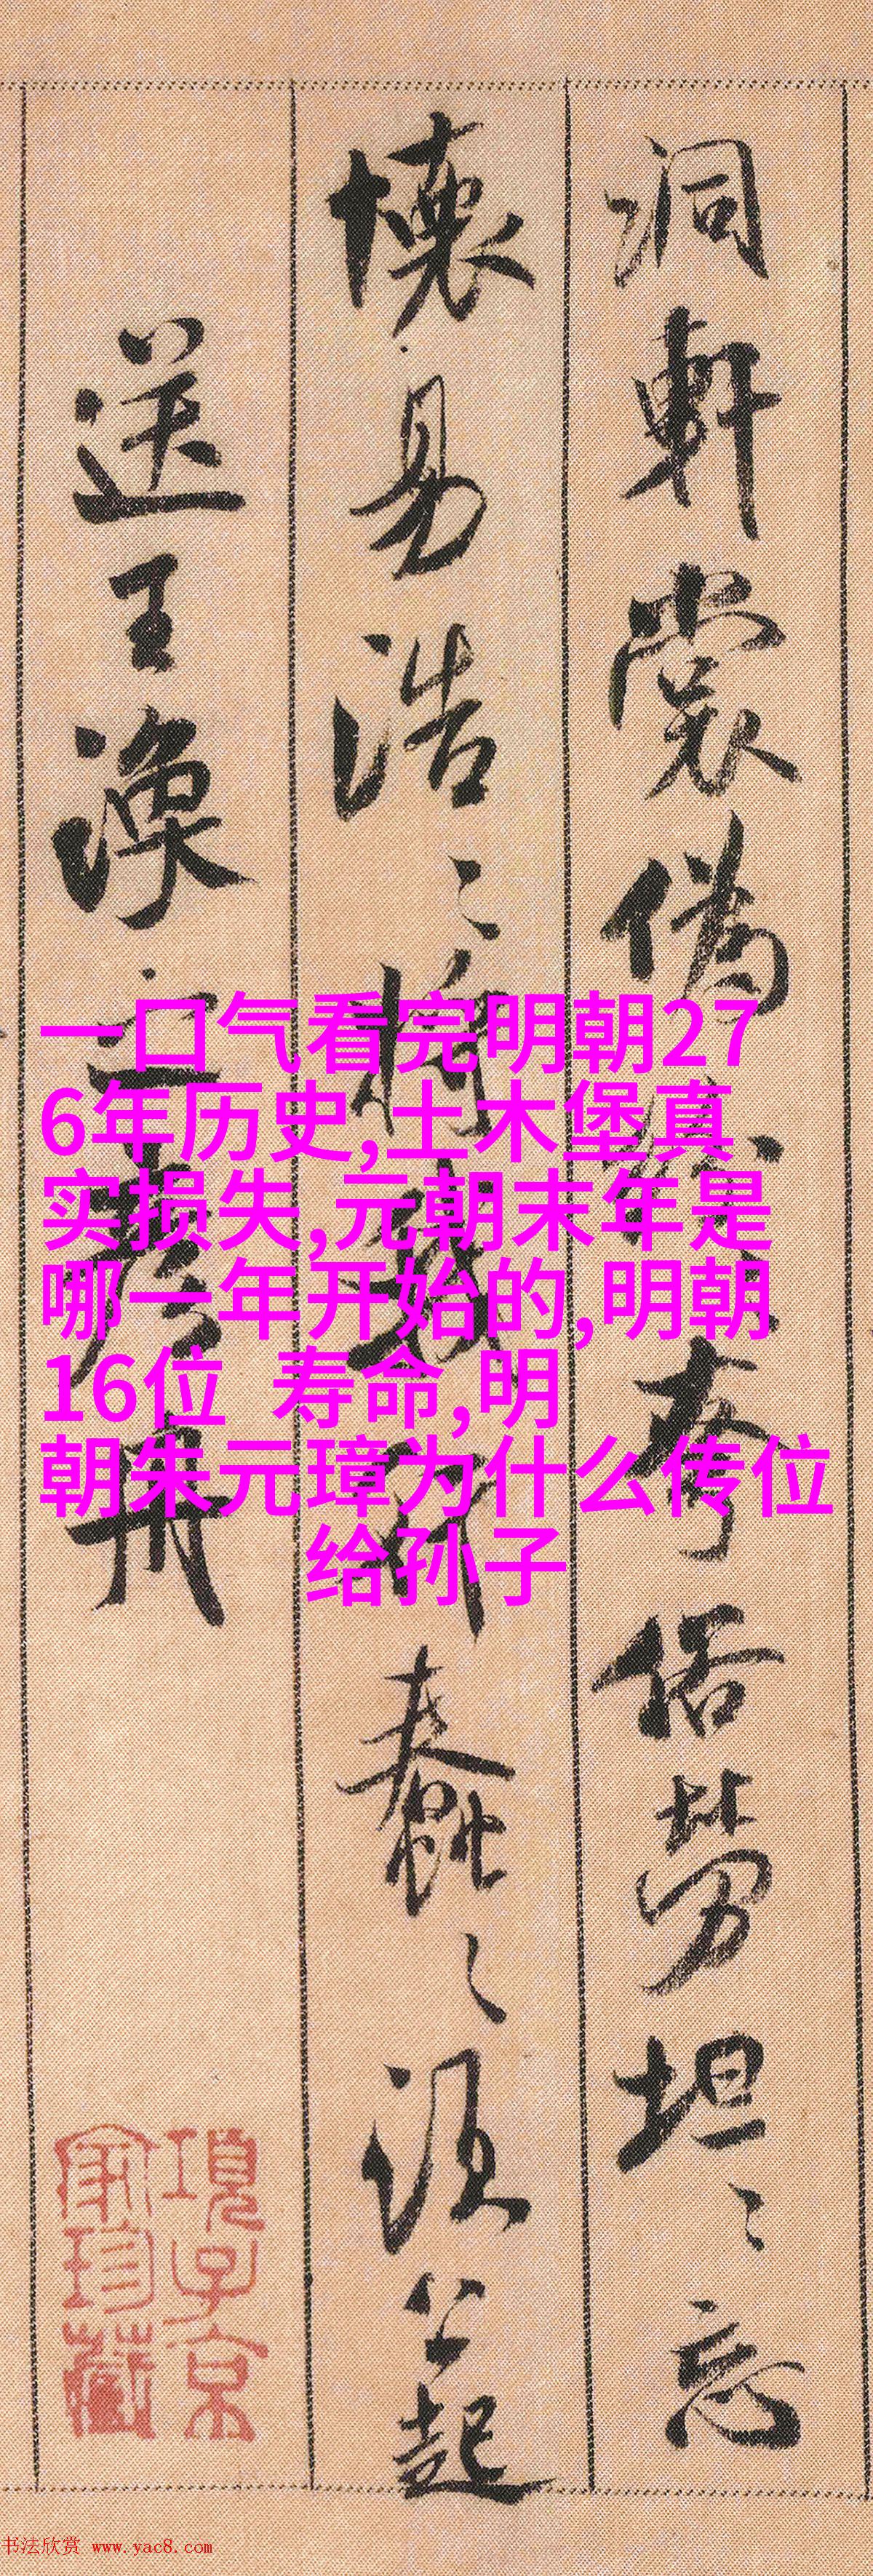 洞軒裳偽
孝俗勞坦〻忘
懷易浩〻將
蠢〻語公起
送王渙之彥舟
一口气看完明朝27
6年历史,土木堡真
实损失,元朝末年是
哪一年开始的,明朝
16位 寿命,明
朝朱元璋为什么传位
给孙子
項子京
家珍藏
书法欣赏 www.yac8.com